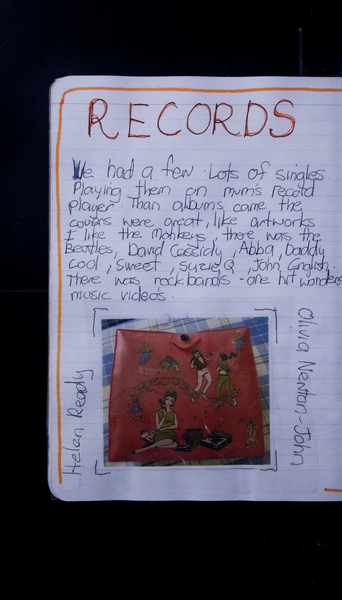 RECORDS
We had a few. Lots of singles.
Playing them on mum's record
player. Than albums came the
covers were great, like artworks
I like the Monkeys, there was the
Beatles, David Cassidy, Abba, Daddy
Cool, Sweet, Suzie Q, John English.
There was rock bands - one hit wonders
music videos.
Helen Ready
Olivia Newtan-John